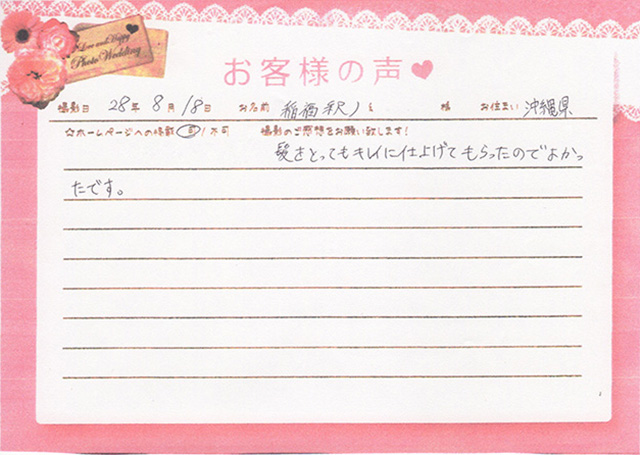 Love and Happy
Photo Wedding
お客様の声
撮影日 28年 8月 18日 お名前 稲福 釈 様 お住まい 沖縄県
☆ホームページへの掲載 可 / 不可 撮影のご感想をお願い致します!
髪をとってもキレイに仕上げてもらったのでよかっ
たです。